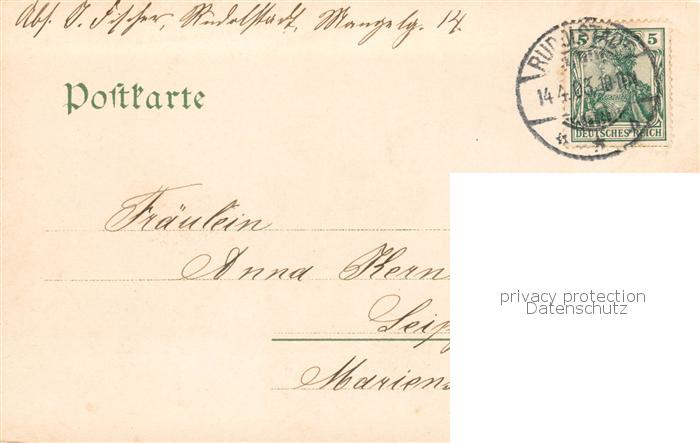 Abs. J. Fischer, Rudolstadt, Mangelg. 14.
5 5
RUDOLSTADT
14.4.03. 10-11N
DEUTSCHES REICH
Postkarte
Fräulein
Anna Kern
Leip
Mariens
privacy protection
Datenschutz